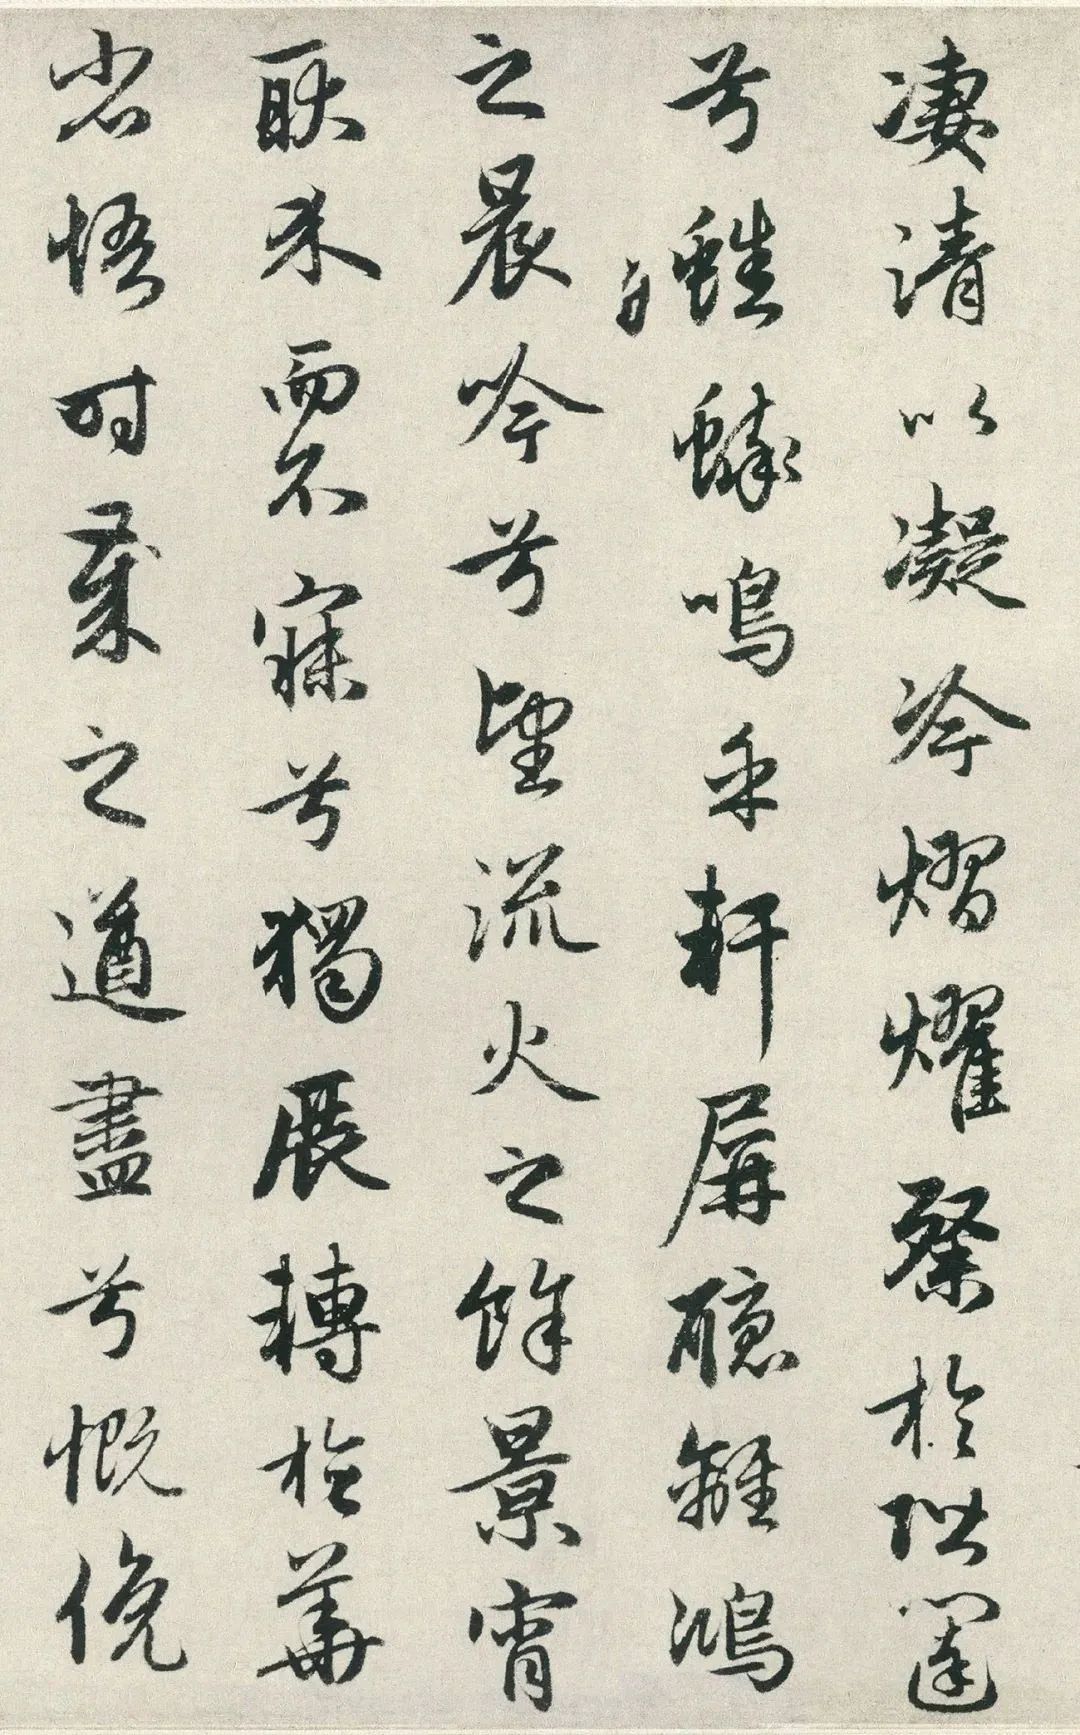 凄清以凝冷熠燿粲於階闥
兮蟋蟀鳴乎軒屏聽離鴻
之晨吟兮望流火之餘景宵
耿介而不寐兮獨展轉於華
省悟時歲之遒盡兮慨俛